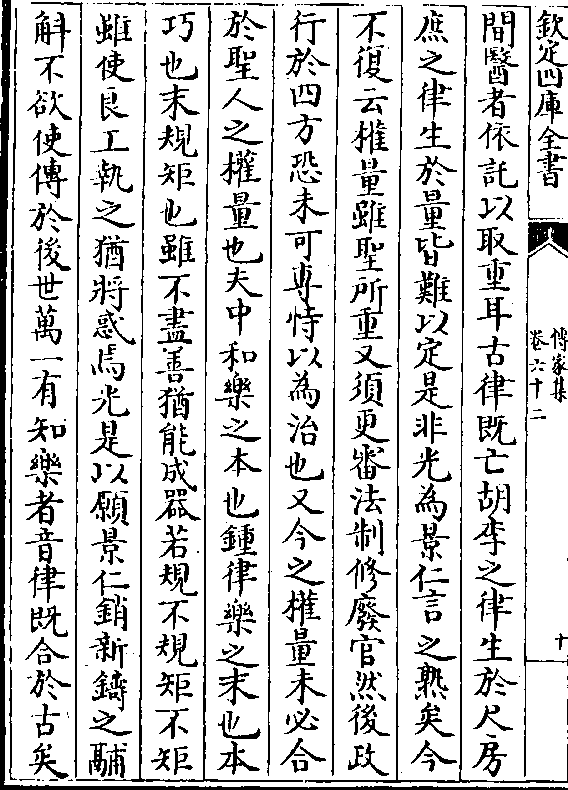 欽定四庫全書
傳家集
卷六十二
十
間醫者依託以取重耳古律既亡胡李之律生於尺房
庶之律生於量皆難以定是非光為景仁言之熟矣今
不復云權量雖聖所重又須更審法制修廢官然後政
行於四方恐未可專恃以為治也又今之權量未必合
於聖人之權量也夫中和樂之本也鍾律樂之末也本
巧也末規矩也雖不盡善猶能成器若規不規矩不矩
雖使良工執之猶將惑焉光是以願景仁銷新鑄之鬴
斛不欲使傳於後世萬一有知樂者音律既合於古矣